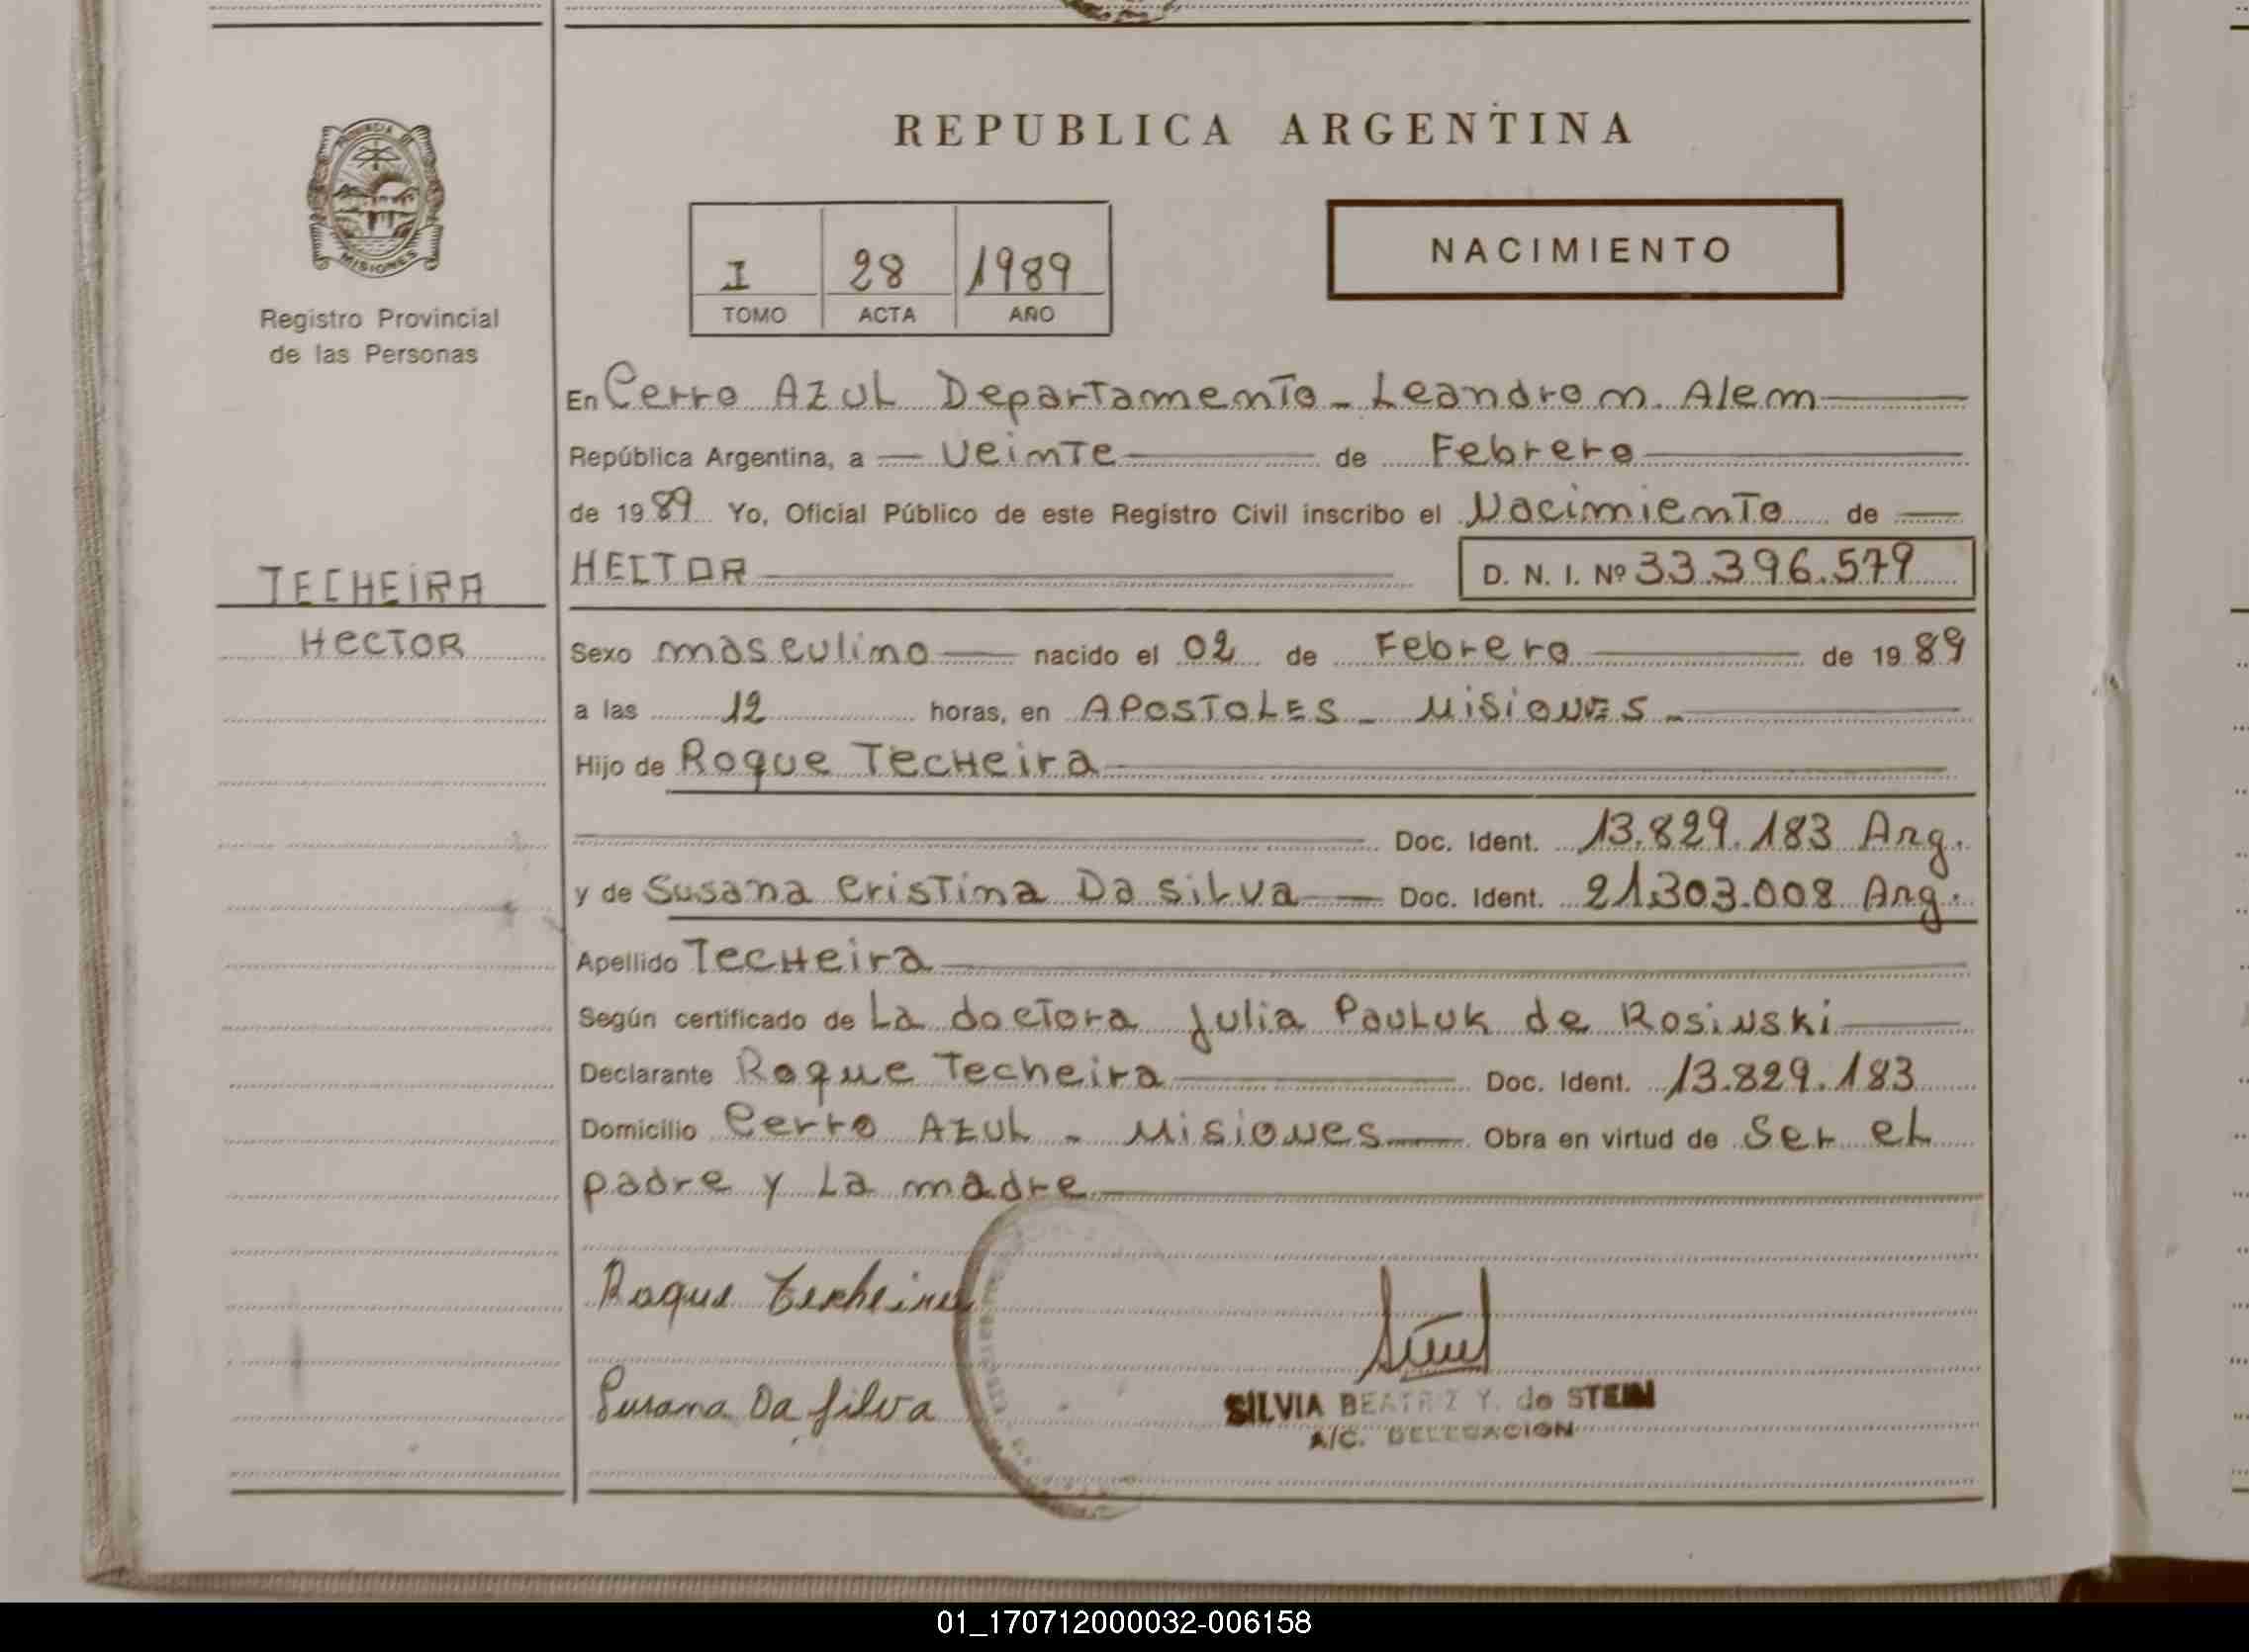 REPUBLICA ARGENTINA
PROVINCIA DE
MISIONES
Registro Provincial
de las Personas
I 28 1989
TOMO ACTA AÑO
NACIMIENTO
En Cerro Azul Departamento - Leandro n. Alem
República Argentina, a Veinte de Febrero
de 1989 Yo, Oficial Público de este Registro Civil inscribo el Nacimiento de
HECTOR D. N. I. Nº 33.396.579
TECHEIRA
HECTOR
Sexo masculino nacido el 02 de Febrero de 1989
a las 12 horas, en APOSTOLES - MISIONES -
Hijo de Roque Techeira
Doc. Ident. 13.829.183 Arg.
y de Susana Cristina Da Silva Doc. Ident. 21.303.008 Arg.
Apellido Techeira
Según certificado de La doctora Julia Pauluk de Rosinski
Declarante Roque Techeira Doc. Ident. 13.829.183
Domicilio Cerro Azul - Misiones Obra en virtud de Ser el
padre y La madre
Roque Techeira
Susana Da Silva
SILVIA BEATRIZ Y. de STEIN
A/C. DELEGACION
01_170712000032-006158